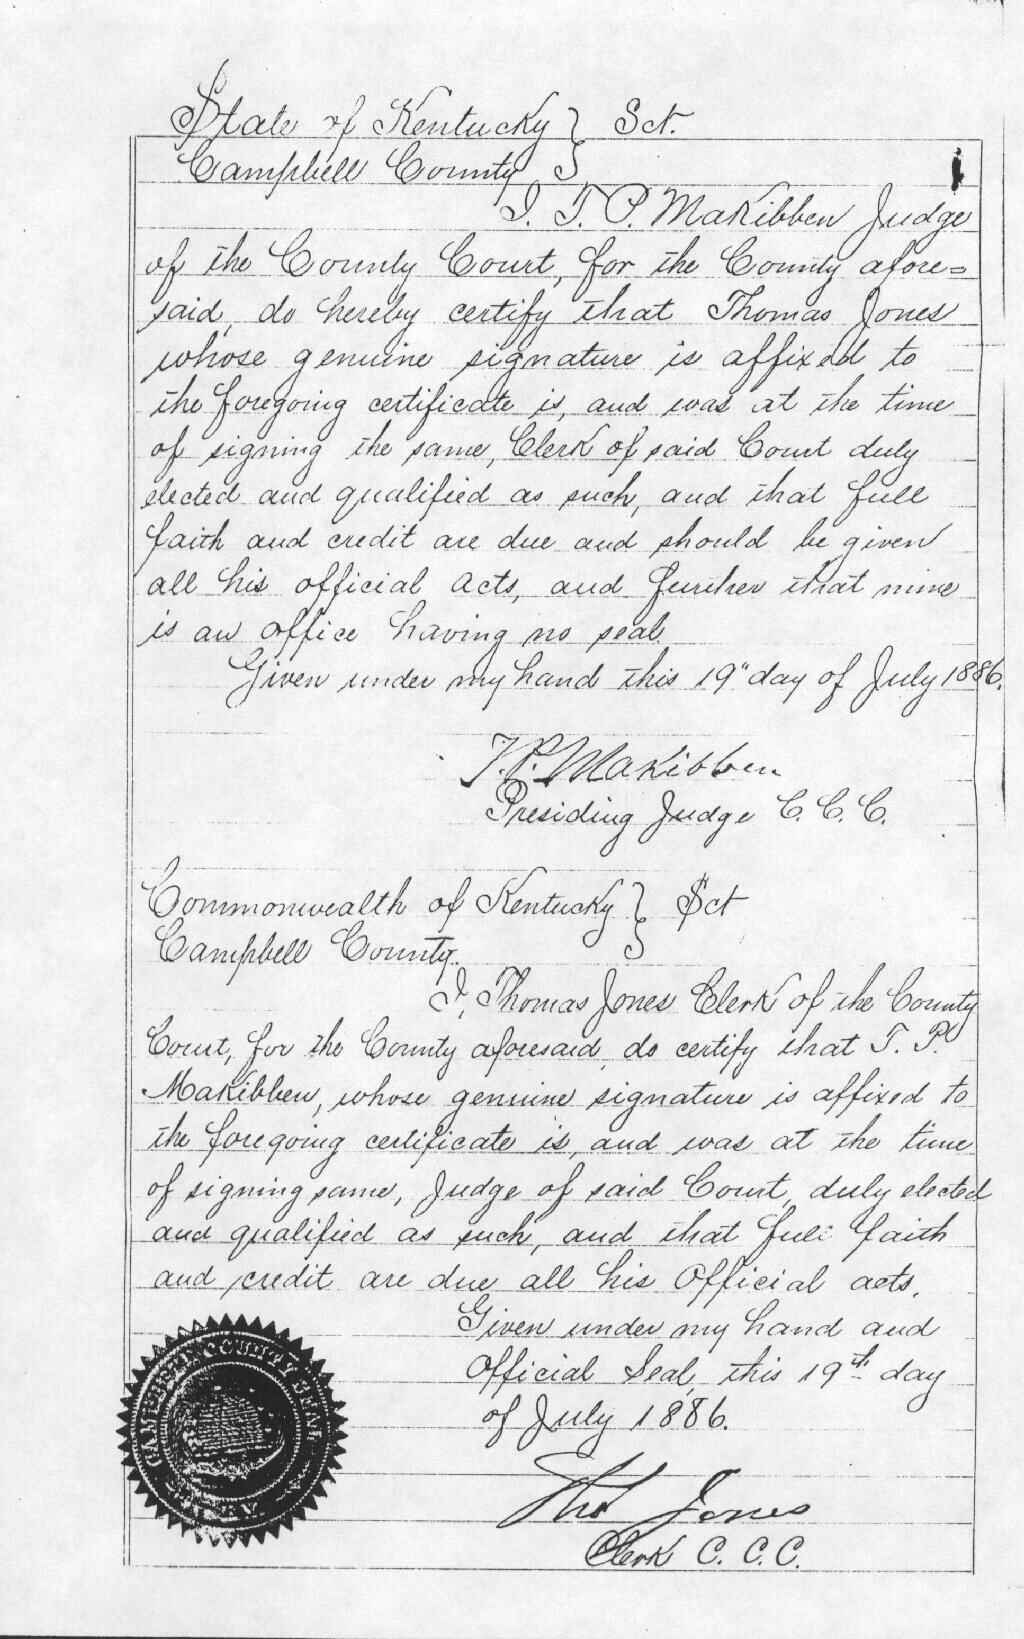 State of Kentucky } Sct.
Campbell County }
I. T. P. Makibben Judge
of the County Court, for the County afore=
said, do hereby certify that Thomas Jones
whose genuine signature is affixed to
the foregoing certificate is, and was at the time
of signing the same, Clerk of said Court duly
elected and qualified as such, and that full
faith and credit are due and should be given
all his official acts, and further that mine
is an office having no seal.
Given under my hand this 19" day of July 1886.
T. P. Makibben
Presiding Judge C. C. C.
Commonwealth of Kentucky } Sct
Campbell County. }
I, Thomas Jones Clerk of the County
Court, for the County aforesaid, do certify that T. P.
Makibben, whose genuine signature is affixed to
the foregoing certificate is, and was at the time
of signing same, Judge of said Court, duly elected
and qualified as such, and that full faith
and credit are due all his Official acts.
Given under my hand and
Official Seal, this 19th day
of July 1886.
Tho Jones
Clerk C. C. C.